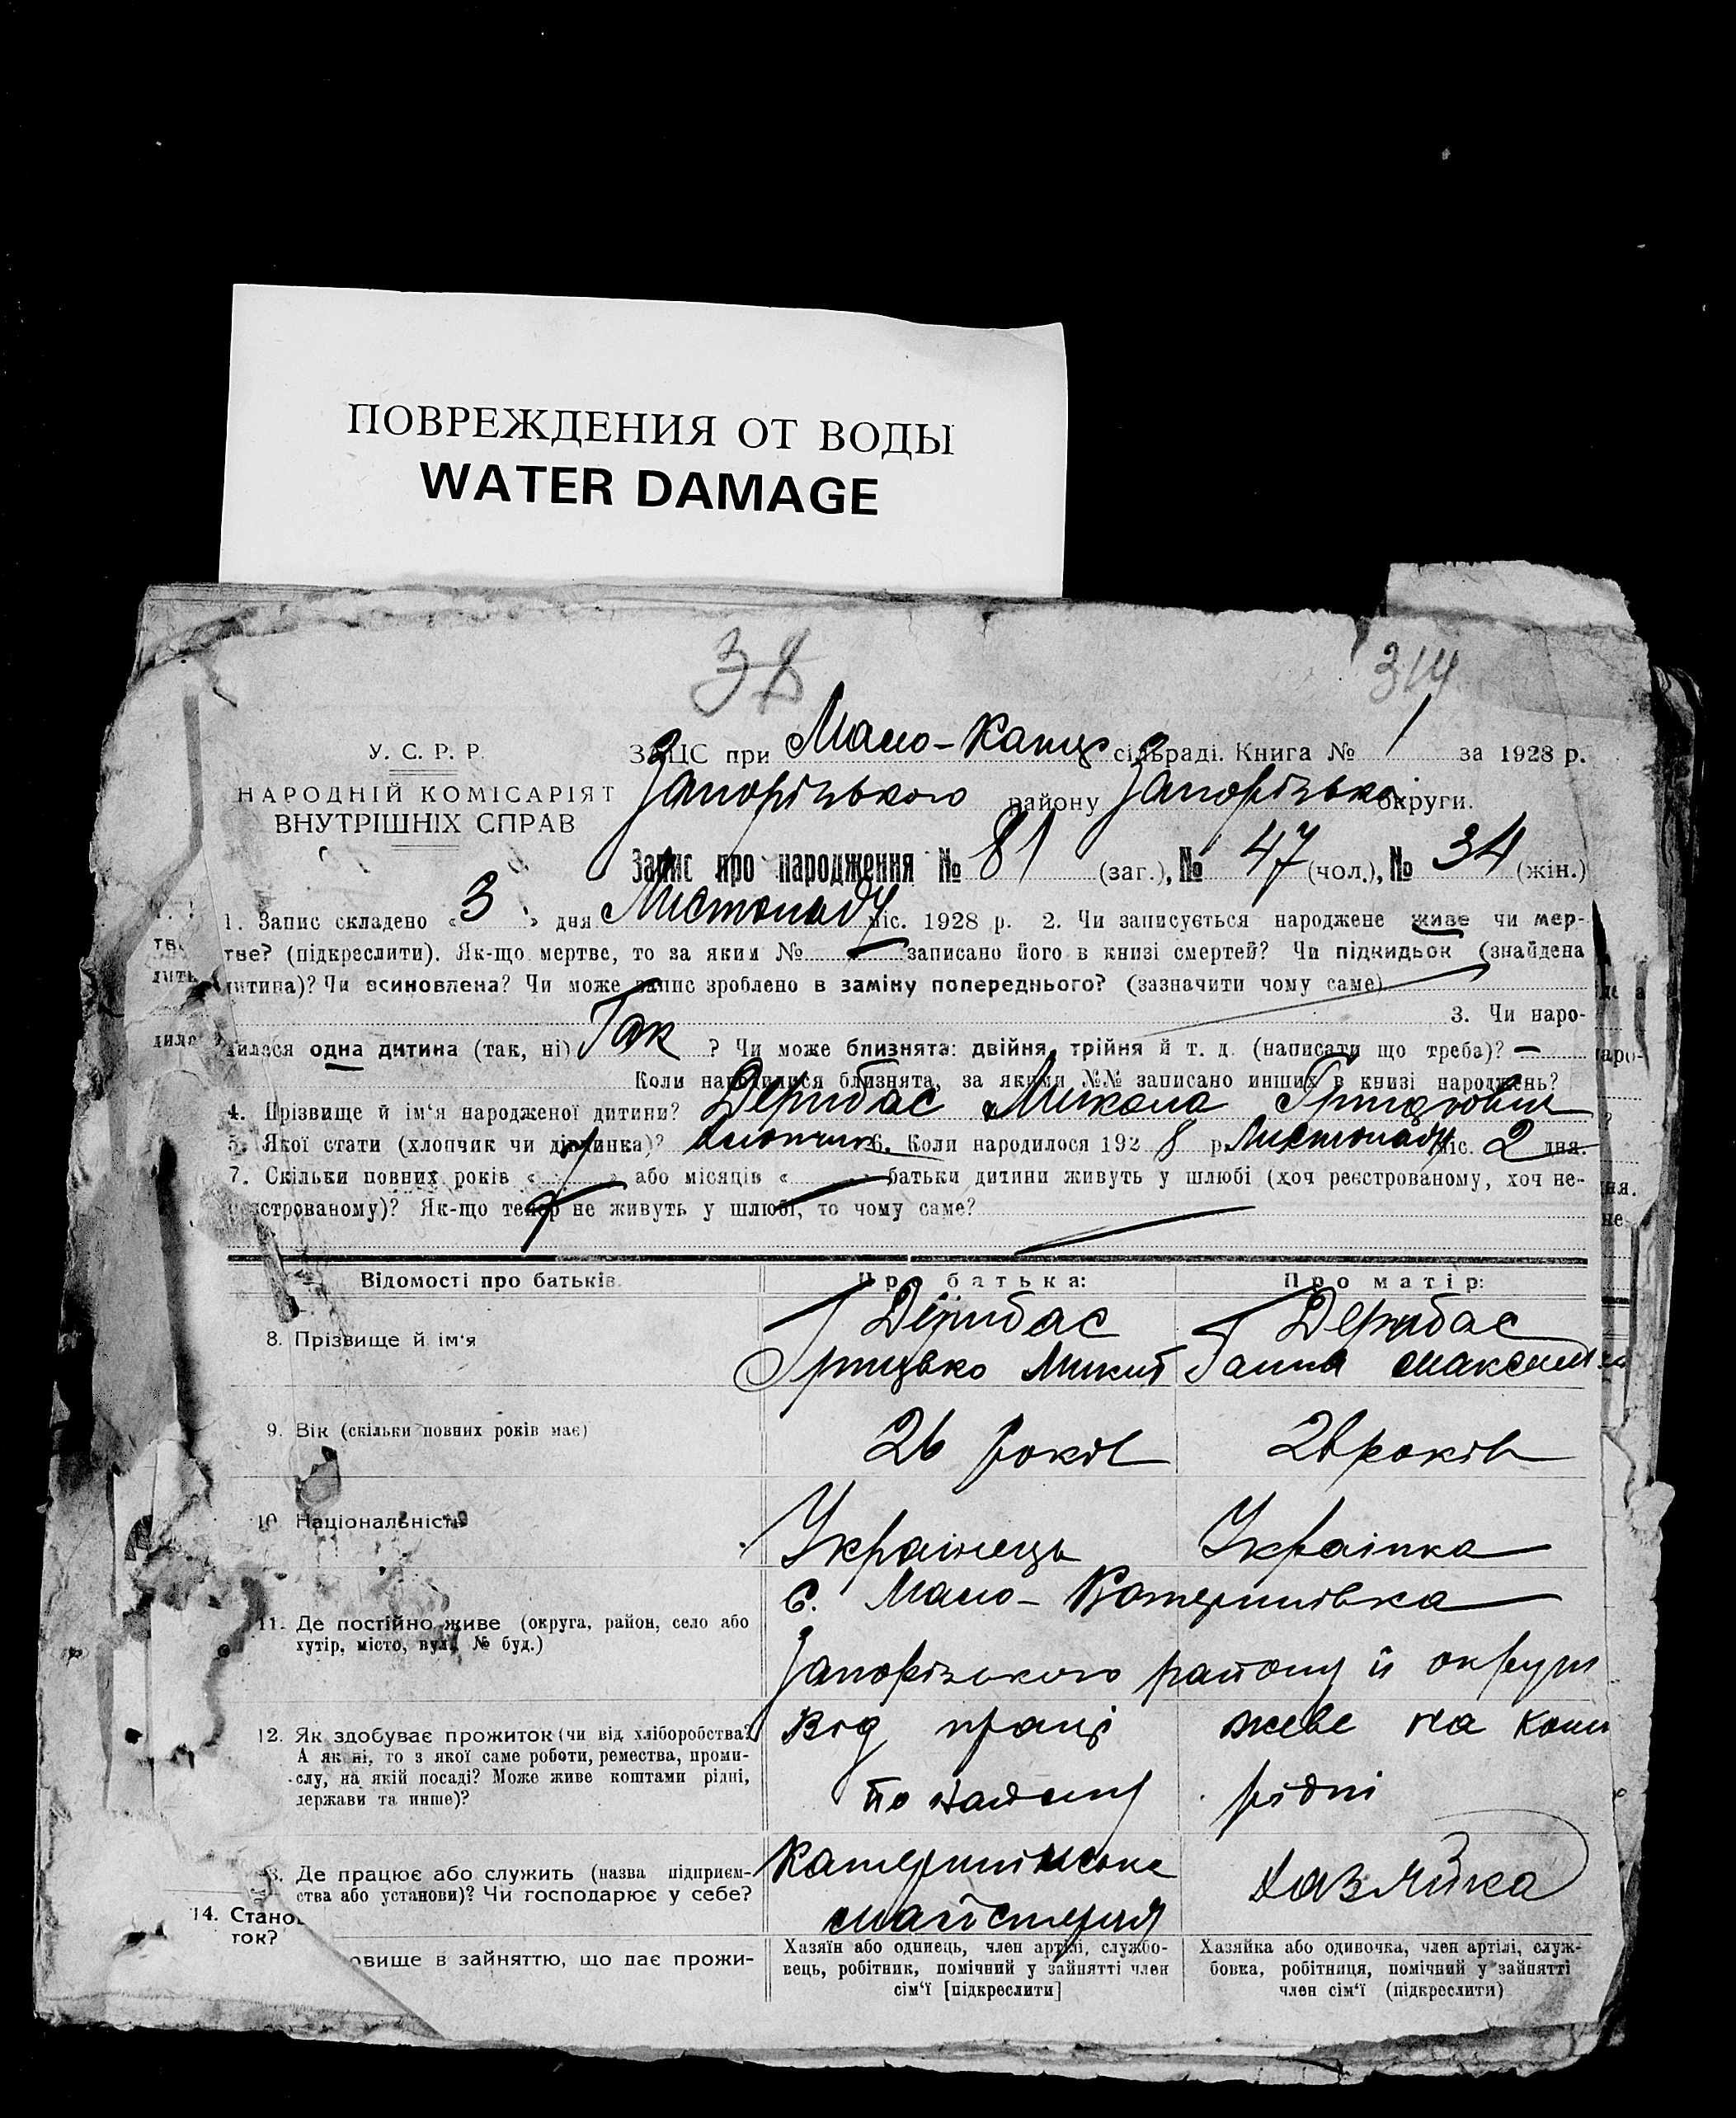 ПОВРЕЖДЕНИЯ ОТ ВОДЫ
WATER DAMAGE
38
314
У. С. Р. Р.
НАРОДНІЙ КОМІСАРІЯТ
ВНУТРІШНІХ СПРАВ
ЗАЦС при Мало-Кате сільраді. Книга № 1 за 1928 р.
Запорізького району Запорізької округи.
Запис про народження № 81 (заг.), № 47 (чол.), № 34 (жін.)
1. Запис складено «3» дня Листопаду міс. 1928 р. 2. Чи записується народжене живе чи мер-
тве? (підкреслити). Як-що мертве, то за яким № записано його в книзі смертей? Чи підкидьок (знайдена
дитина)? Чи всиновлена? Чи може запис зроблено в заміну попереднього? (зазначити чому саме)
3. Чи наро-
дилася одна дитина (так, ні) Так ? Чи може близнята: двійня, трійня й т. д. (написати що треба)? —
Коли народилися близнята, за якими №№ записано инших в книзі народжень?
4. Прізвище й ім‘я народженої дитини? Дерибас Микола Грицькович
5. Якої стати (хлопчик чи дівчинка)? хлопчик 6. Коли народилося 1928 р. Листопаду міс. 2 дня.
7. Скільки повних років « » або місяців « » батьки дитини живуть у шлюбі (хоч реєстрованому, хоч не-
реєстрованому)? Як-що тепер не живуть у шлюбі, то чому саме?
Відомості про батьків.
Про батька:
Про матір:
8. Прізвище й ім‘я
Дерибас
Грицько Микит
Дерибас
Ганна Максим
9. Вік (скільки повних років має)
26 років
26 років
10. Національність
Українець
Українка
11. Де постійно живе (округа, район, село або
хутір, місто, вул., № буд.)
с. Мало-Катеринівка
Запорізького району й округи
12. Як здобуває прожиток (чи від хліборобства?
А як ні, то з якої саме роботи, ремества, проми-
слу, на якій посаді? Може живе коштами рідні,
держави та инше)?
Від праці
по найму
живе на кошт
рідні
13. Де працює або служить (назва підприєм-
ства або установи)? Чи господарює у себе?
Катеринівська
майстерня
Хазяйка
14. Стано
ток?
овище в зайняттю, що дає прожи-
Хазяїн або одинець, член артілі, службо-
вець, робітник, помічний у зайнятті член
сім‘ї [підкреслити]
Хазяйка або одиночка, член артілі, служ-
бовка, робітниця, помічний у зайнятті
член сім‘ї (підкреслити)